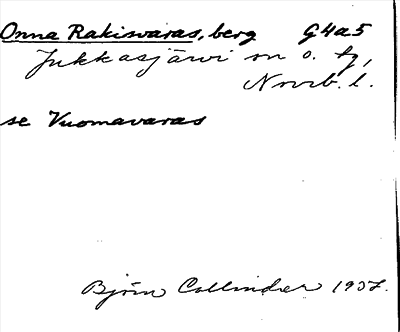 Onna Rakisvaras, berg G4a5
Jukkasjärvi sn o. tg,
Norrb. l.
se Vuomavaras
Björn Collinder 1957.